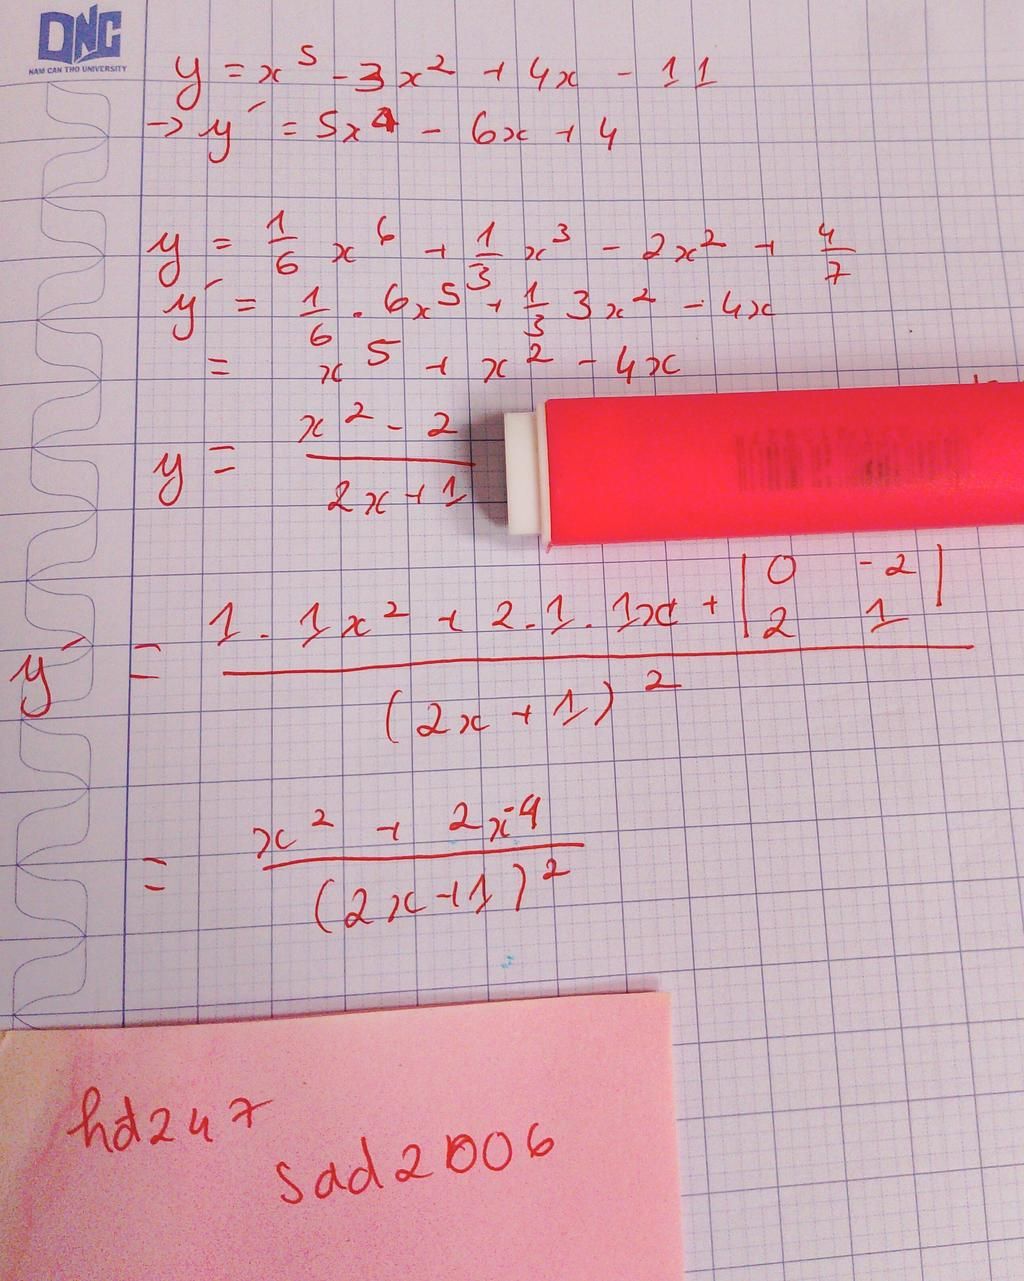 DNC
NAM CAN THO UNIVERSITY
y = x⁵ - 3x² + 4x - 11
→ y' = 5x⁴ - 6x + 4
y = 1/6 x⁶ + 1/3 x³ - 2x² + 4/7
y' = 1/6 . 6x⁵ + 1/3 3x² - 4x
= x⁵ + x² - 4x
y = (x² - 2)/(2x + 1)
y' = (1 . 1x² + 2.1.1x + |0 -2; 2 1|)/(2x + 1)²
= (x² + 2x - 4)/(2x + 1)²
hd247
sad2006